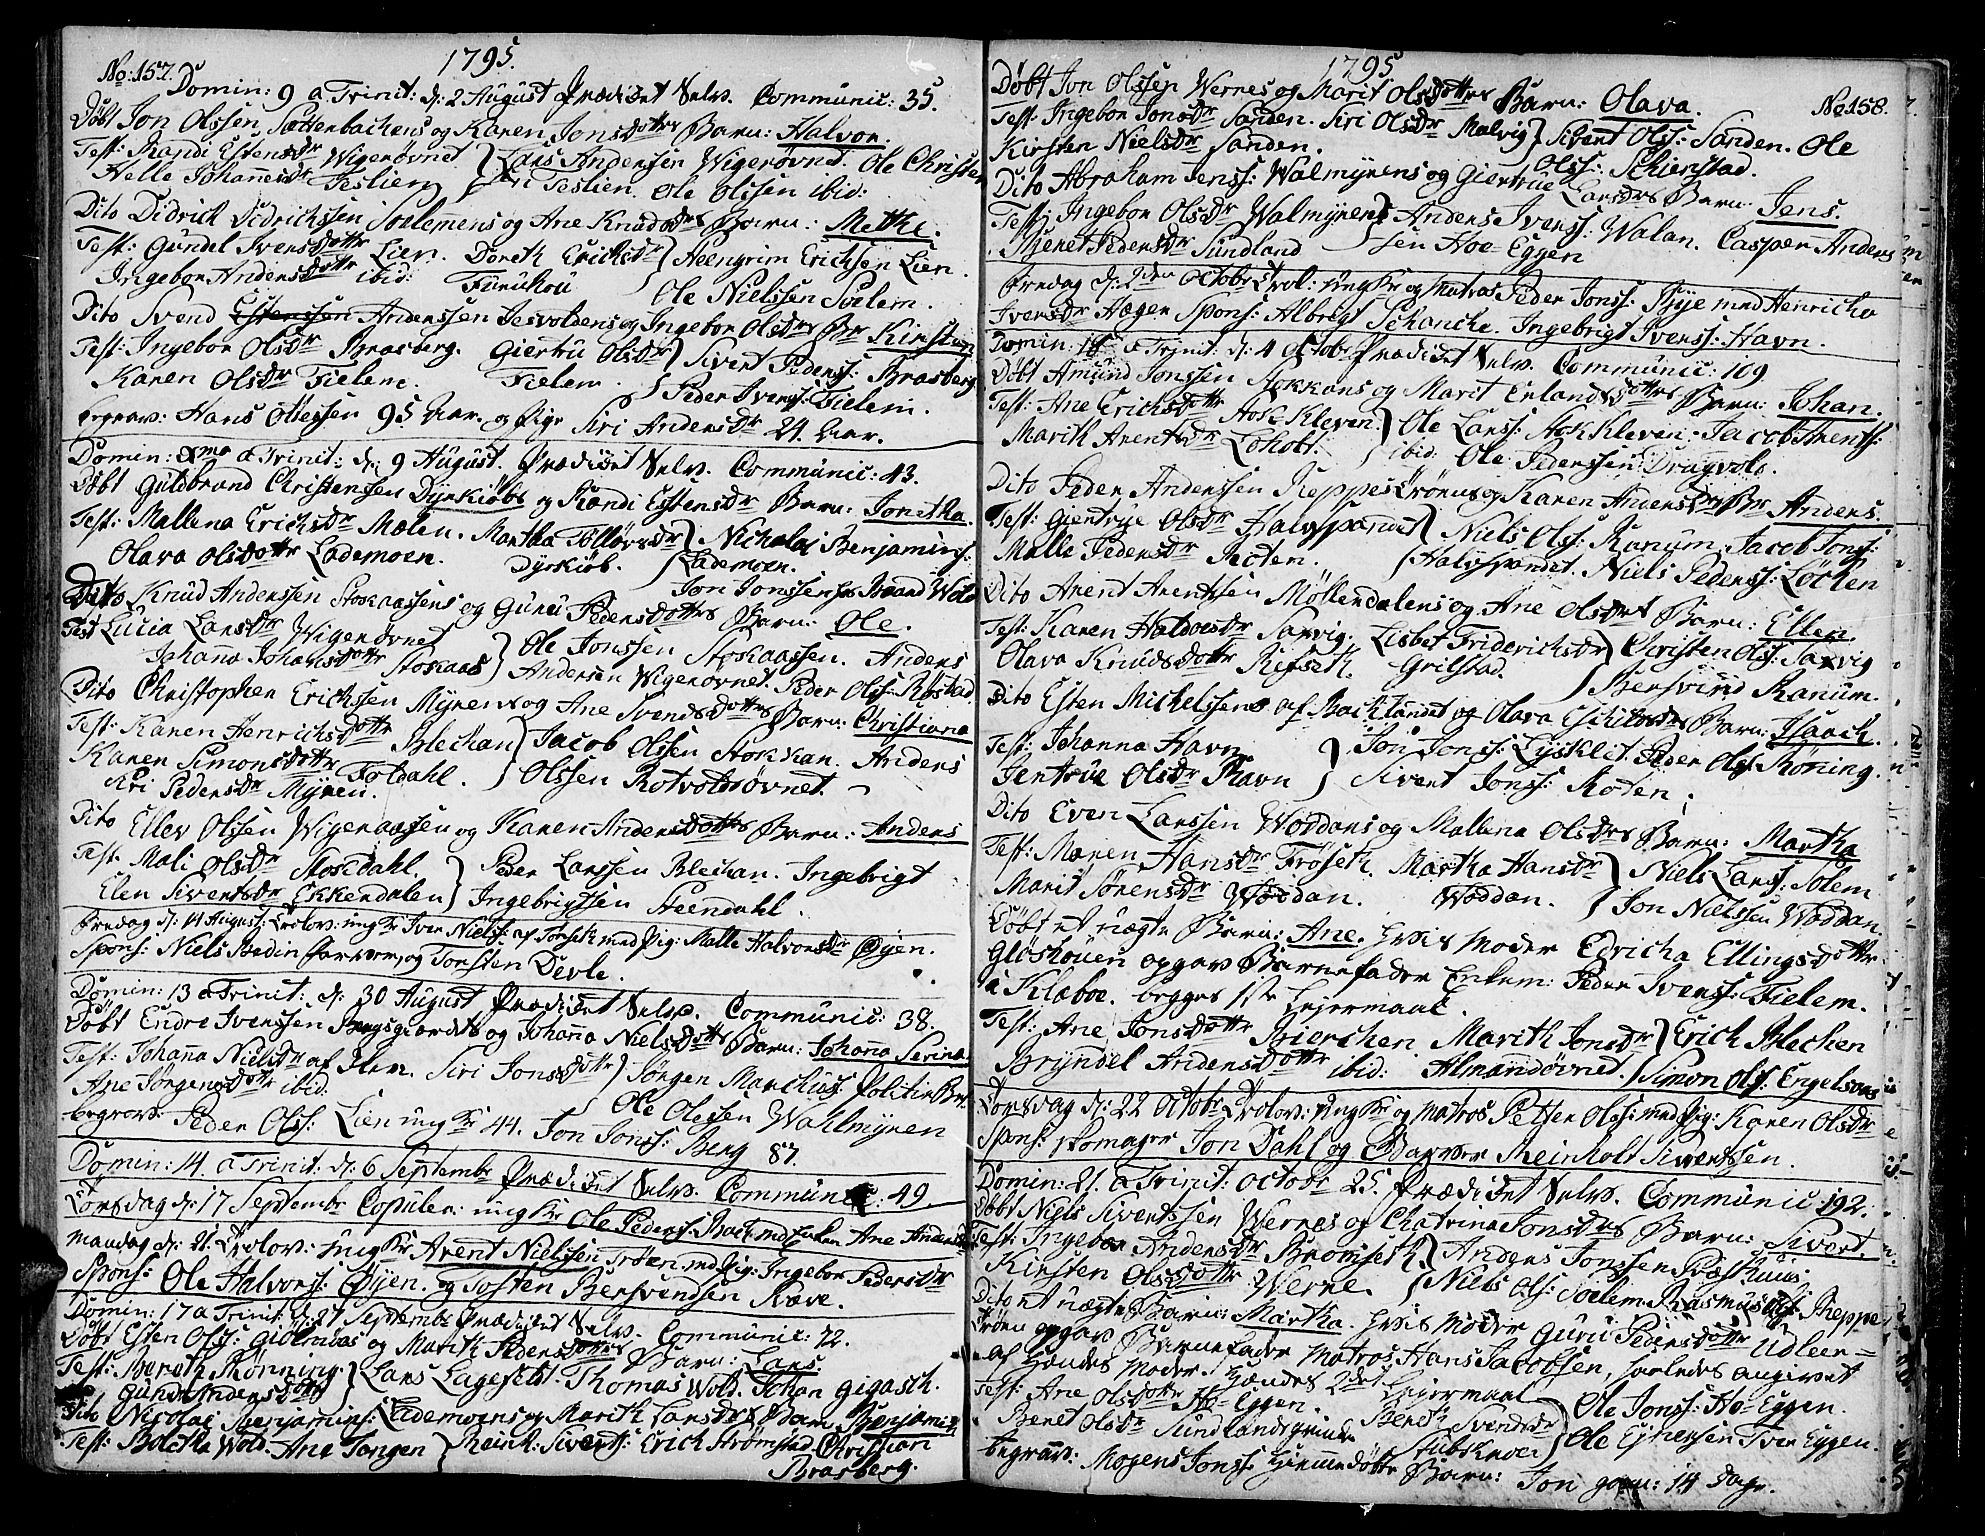 No: 157. 1795.
Domin: 9 a Trinit: d: 2 August Prædiket Selv. Communic: 35.
Døbt Jon Olssen Sættenbachens og Karen Jonsdotters Barn: Halvor.
Test: Randi Estensdr Wigerøvnet } Lars Anderssen Wigerøvnet. Ole Christen
Helle Johannesdr Teslien } Siri Teslien. Ole Olssen ibid:
Dito Didrich Didrichssen Soelemens og Ane Knudsdrs Barn: Methe.
Test: Gundel Ivensdottr Lien. Doreth Erichsdr } Heengrim Erichsen Lien.
Ingebor Andersdottr ibid: Furuhou } Ole Nielssen Soelem.
Dito Svend Estenssen Anderssen Jesvoldsens og Ingebor Olsdrs Br Kirsten
Test: Ingebor Olsdr Brasberg. Giertru Olsdr } Sivert Pederss: Brasberg
Karen Olsdr Fielem. Fielem. } Peder Iverss: Fielem.
begrav: Hans Olssen 95 Aar. og Pige Siri Andersdr 24 Aar.
Domin: Xmo a Trinit: d: 9 August. Prædiket Selv. Communic: 43.
Døbt Guldbrand Christensen Dyrkiøbs og Randi Estensdr Barn: Jonetha.
Test: Mallena Erichsdr Mælen. Martha Tolløvsdr } Nicholai Benjamins:
Olava Olsdottr Lademoen. Dyrkiøb. } Lademoen.
Jon Jonssen Brand Wold
Dito Knud Anderssen Stokaassens og Guru Pedersdotters Barn: Ole.
Test Lucia Larsdr Wigerøvnet } Ole Jonssen Stokaassen. Anders
Johanna Johansdottr Stokaas } Andersen Wigerøvnet. Peder Olss: Røstad
Dito Christopher Erichssen Myrens og Ane Svendsdotters Barn: Christiana
Test: Karen Henrichsdottr Blechan } Jacob Olssen Stokkan. Anders
Karen Simonsdottr Foldahl. } Olssen Rotvoldsøvnet.
Siri Pedersdr Myren.
Dito Ellev Olssen Wigenaasen og Karen Andersdotters Barn: Anders
Test. Mali Olsdr Mosdahl. } Peder Larssen Blechan. Ingebrigt
Elen Sivertsdr Ekkerdalen } Ingebrigtsen Steendahl.
Fredag d: 14 August: Trolov: ungkr Iver Nielss: af Torseth med Pig: Malle Halvorsdr Øyen.
Spons: Niels Bedin og Torsten Devle.
Domin: 13 a Trinit: d: 30 August Prædiket Selv. Communic: 38.
Døbt Endre Ivenssen Bergsgiærdets og Johanna Nielsdotters Barn: Johanna Serina.
Test: Johanna Nielsdr af Ihlen. Siri Jonsdottr } Jørgen Marchuss: Politie
Ane Jørgensdottr ibid: Ole Olssen Wahlmyren
begrav: Peder Olss: Lien ungkr 44. Jon Jonss: Berg 87.
Domin: 14. a Trinit: d: 6 Septembr Prædiket Selv. Communic: 49.
Torsdag d: 17 Septembr Copuler: ungkr Ole Pederss: Bach med Enken Ane Andersdr
Mandag d: 21. Trolov: ungkr Arent Nielssen Trøen med Pig: Ingebor Pedersdr
Spons: Ole Halvorss: Øyen. og Tosten Bersvendsen Ræve.
Domin: 17 a Trinit: d: 27 Septembr Prædiket Selv. Communic: 72.
Døbt Esten Olss: Giølmaas og Marith Pedersdotters Barn: Lars.
Test: Bereth Rønning } Lars Lagesen. Thomas Wold. Johan Gigasth.
Gunild Andersdottr
Dito Nicolai Benjaminss: Lademoens og Marith Larsdrs Barn Benjamin
Test: Boletha Wold. Ane Tangen } Reinh: Siverts: Erich Strømstad. Christian
Brasberg.
1795 No 158.
Døbt Jon Olssen Wernes og Marit Olsdotters Barn: Olava.
Test: Ingebor Jonsdr Sanden. Siri Olsdr Malvig } Sivert Olss: Sanden. Ole
Kirsten Nielsdr Sanden. Olss: Schierstad.
Dito Abraham Jenss: Walmyrens og Giertrue Larsdrs Barn: Jens.
Test: Ingebor Olsdr Walmyren } Anders Ivenss: Walan. Casper Anders
Benet Pedersdr Sundland } sen Hoe-Eggen
Fredag d: 2den Octobr Trol: ungkr og Matros Peder Jonss: Bye med Henricha
Iversdr Hagen Spons: Albrigt Schancke. Ingebrigt Ivenss: Havn.
Domin: 18 a Trinit: d: 4 Octobr Prædiket Selv. Communic: 109
Døbt Amund Jonssen Stokkans og Marit Erlandsdotters Barn: Johan.
Test: Ane Erichsdottr Stokkleven } Ole Larss: Stokkleven. Jacob Arents:
Marith Arentsdr Loholt. } ibid: Ole Pederssen Dragvold.
Dito Peder Anderssen Reppes Trøens og Karen Andersdrs Br Anders.
Test: Giertrue Olsdr Halvspandet } Niels Olss: Ranum. Jacob Jonss:
Malle Pedersdr Roten. } Halvspandet. Niels Pederss: Løchen
Dito Arent Arentssen Møllerdalens og Ane Olsdrs Barn: Ellen.
Test: Karen Haldoesdr Saxvig. Lisbet Friderichsdr } Christen Olss: Saxvig
Olava Knudsdottr Refseth. Grilstad. } Bersvend Ranum.
Dito Esten Michelssens af Backlandet og Olava Eschildsdrs Barn: Isaach.
Test: Johanna Havn } Jon Jonss: Lysklet. Peder Olss: Røning.
Jertrue Olsdr Ravn } Sivert Jonss: Roten.
Dito Even Larssen Woddans og Mallena Olsdrs Barn: Martha
Test: Maren Hansdr Trøseth. Martha Hansdr } Niels Larss: Solem
Marit Sørensdr Woddan. Woddan. } Jon Nielssen Woddan.
Døbt et uægte Barn: Ane. hvis Moder Edricha Ellingsdottr
Gløshouen opgav Barnefader Enkem: Peder Ivenss: Fielem.
i Klæboe. begges 1ste Leiermaal.
Test: Ane Jonsdottr Bierchen. Marith Jonsdr } Erich Blechen
Bryndel Andersdottr ibid: Almandøvnet. } Simon Olss: Engelsaas
Torsdag d: 22 Octobr Trolov: ungkr og Matros Petter Olss: med Pig: Karen Olsdr
Spons: Skomager Jon Dahl og Reinholt Sivertsen.
Domin: 21. a Trinit: Octobr 25. Prædiket Selv. Communic: 192.
Døbt Niels Sivertssen Wernes og Chatrina Jonsdrs Barn: Sivert.
Test: Ingebor Andersdr Bromseth } Anders Jonssen Præsthuus
Kirsten Olsdottr Werne. } Niels Olss: Soelem. Rasmus Olss: Reppe
Dito et uægte Barn: Martha. hvis Moder Guru Pedersdottr Udleer=
Trøen opgav Barnefader Matros Hans Jacobsen, saaledes angivet
af hendes Moder. hendes 2det Leiermaal
Test: Ane Olsdottr Ho-Eggen. Bereth Svendsdr } Ole Jonss: Ho-Eggen.
Benet Olsdr Sundlandsgrind. Stubskoven } Ole Estensen Tver Eggen.
begrav: Mogens Jonss: Hiemmedøbte Barn: Jon gam: 14 Dage.